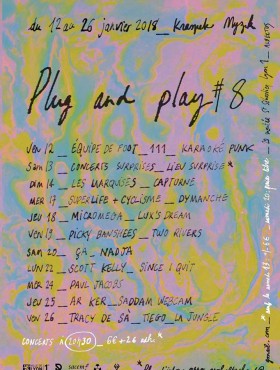 du 12 au 26 janvier 2018_ Kraspek Myzik
Plug and play #8
VEN 12 _ ÉQUIPE DE FOOT _ 111 _ KARAOKÉ PUNK
SAM 13 _ CONCERTS SURPRISES_ LIEU SURPRISE*
DIM 14 _ LES MARQUISES _ CAPTURNE
MER 17 _ SUPERLIFE + CYCLISME _ DYMANCHE
JEU 18 _ MICROMEGA _ LUKS DREAM
VEN 19 _ DICKY BANSHEES _ TWO RIVERS
SAM 20_ GÂ _ NADJA
LUN 22 _ SCOTT KELLY _ SINCE I QUIT
MER 24 _ PAUL JACOBS
JEU 25 _ AR KER _ SADDAM WEBCAM
VEN 26 _ TRACY DE SÀ _ TIEGO LA JUNGLE
CONCERTS À 20H30 _ 6€ + 2€ adh *
sacem